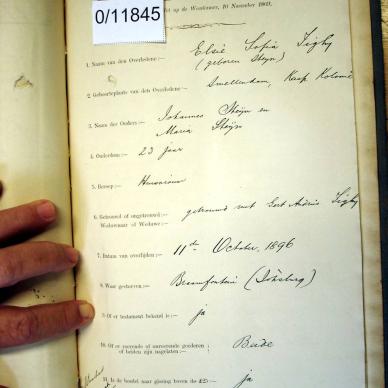 0/11845
op de Weeskamer, 10 November 1903.
Elsie Sofia
1. Naam van den Overledene:—
(geboren Steyn)
2. Geboorteplaats van den Overledene:—
Swellendam, Kaap Kolonie
3. Naam der Ouders:—
Johannes Steyn en
Maria Steyn
4. Ouderdom:—
23 jaar
5. Beroep:—
Huisvrouw
6. Getrouwd of ongetrouwd:—
Weduwnaar of Weduwe:—
getrouwd met Gert Andries
7. Datum van overlijden:—
11de October, 1896
8. Waar gestorven:—
Braamfontein (Johsburg)
9. Of er testament bekend is:—
ja
10. Of er roerende of onroerende goederen
of beiden zijn nagelaten:—
Beide
11. Is de boedel naar gissing boven de £25:—
ja